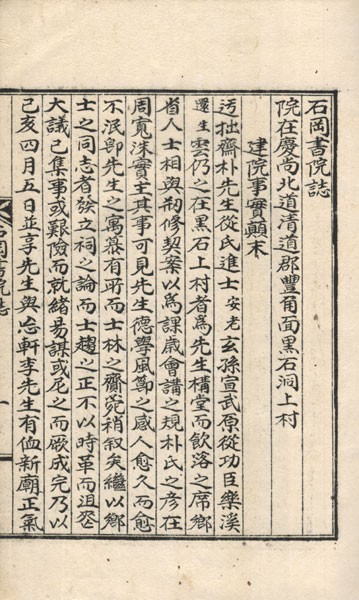 石岡書院誌
院在慶尚北道清道郡豐角面黑石洞上村
建院事實顛末
迃拙齋朴先生從氏進士安老玄孫宣武原從功臣樂溪
還生雲仍之在黑石上村者爲先生構堂而飲落之席鄉
省人士相與刱修契案以爲課歲會講之規朴氏之彦在
周寬洙實主其事可見先生德學風節之感人愈久而愈
不泯卽先生之寓慕有所而士林之齋菀稍叙矣繼以鄉
士之同志者發立祠之論而士趨之正不以時革而沮丕
大議已集事或艱險而就緒易謀或尼之而厥成完乃以
己亥四月五日並享先生與忘軒李先生有侐新廟正氣
石岡書院誌 一